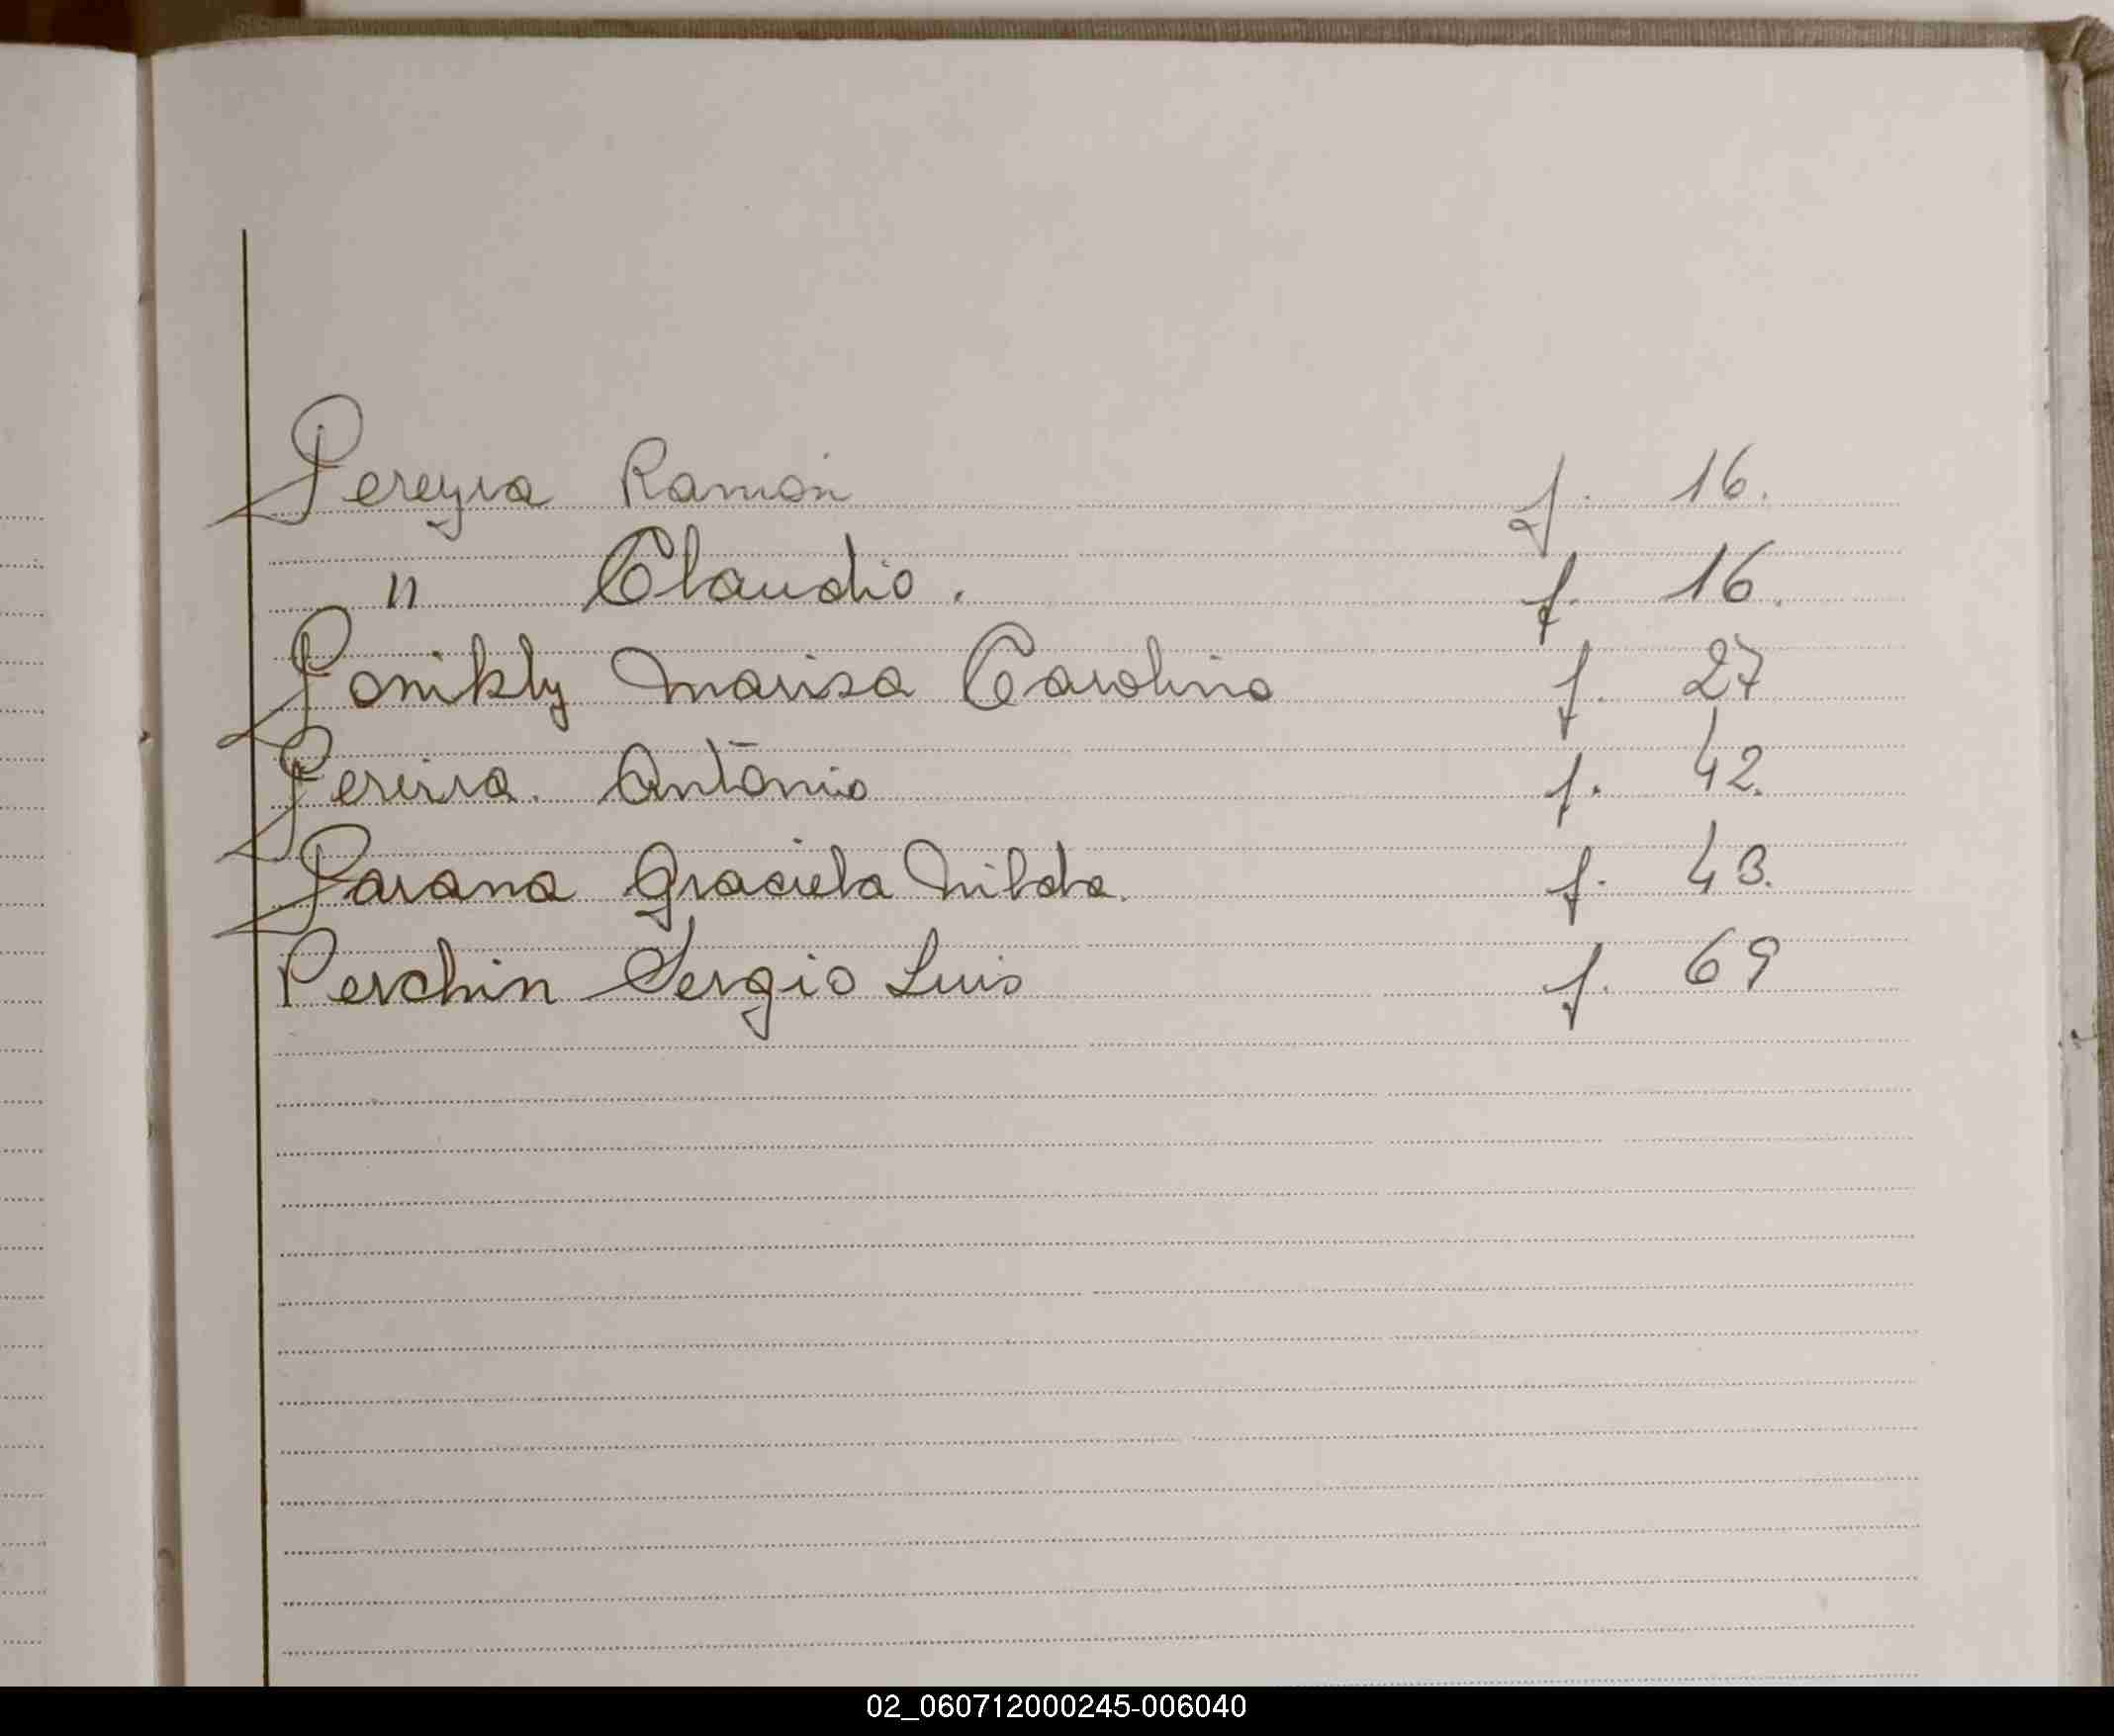 Pereyra Ramón f. 16.
" Claudio. f. 16.
Ponikly Marisa Carolina f. 27
Pereira. Antonio f. 42.
Parana Graciela Nilda. f. 43.
Perchin Sergio Luis f. 69
02_060712000245-006040